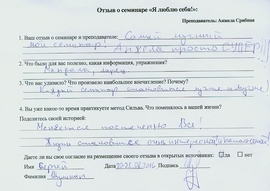 Отзыв о семинаре «Я люблю себя!»:
Преподаватель: Анжела Срибная
1. Ваш отзыв о семинаре и преподавателе: Самый лучший
мой семинар! Анжела просто СУПЕР!!!
2. Что было для вас полезно, какая информация, упражнения?
3. Что вас удивило? Что произвело наибольшее впечатление? Почему?
Каждый семинар становится
4. Вы уже какое-то время практикуете метод Сильва. Что поменялось в вашей жизни?
Поделитесь своей историей:
Меняется постепенно Все!
Жизнь становится очень интересной
Даете ли вы свое согласие на размещение своего отзыва в открытых источниках: да нет
Имя Сергей Дата Подпись
Фамилия